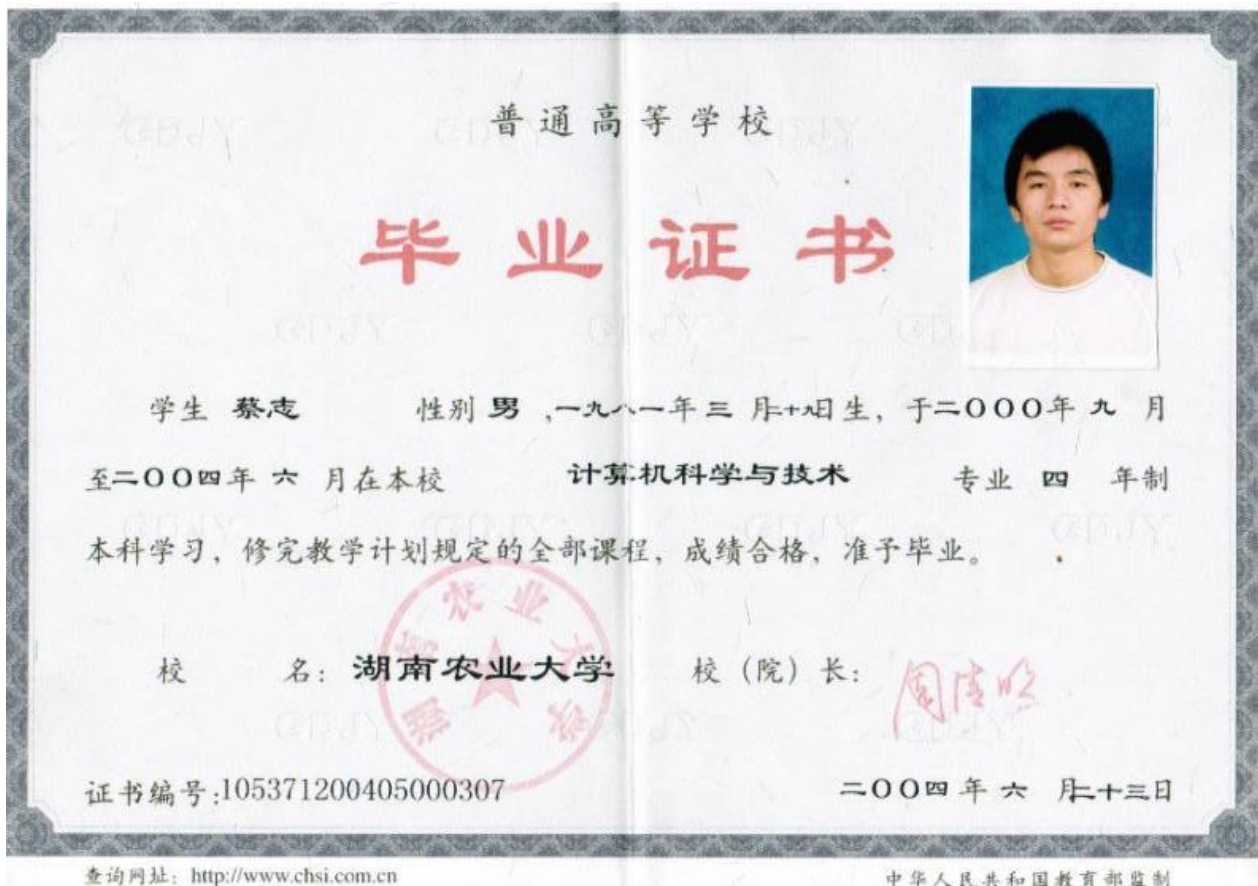 普通高等学校
毕业证书
学生 蔡志 性别 男 ,一九八一年 三 月二十九日生, 于二〇〇〇年 九 月
至二〇〇四年 六 月在本校 计算机科学与技术 专业 四 年制
本科学习, 修完教学计划规定的全部课程, 成绩合格, 准予毕业。
校 名: 湖南农业大学 校 (院) 长: 周清明
湖南农业大学
证书编号:105371200405000307 二〇〇四年 六 月二十三日
查询网址: http://www.chsi.com.cn 中华人民共和国教育部监制